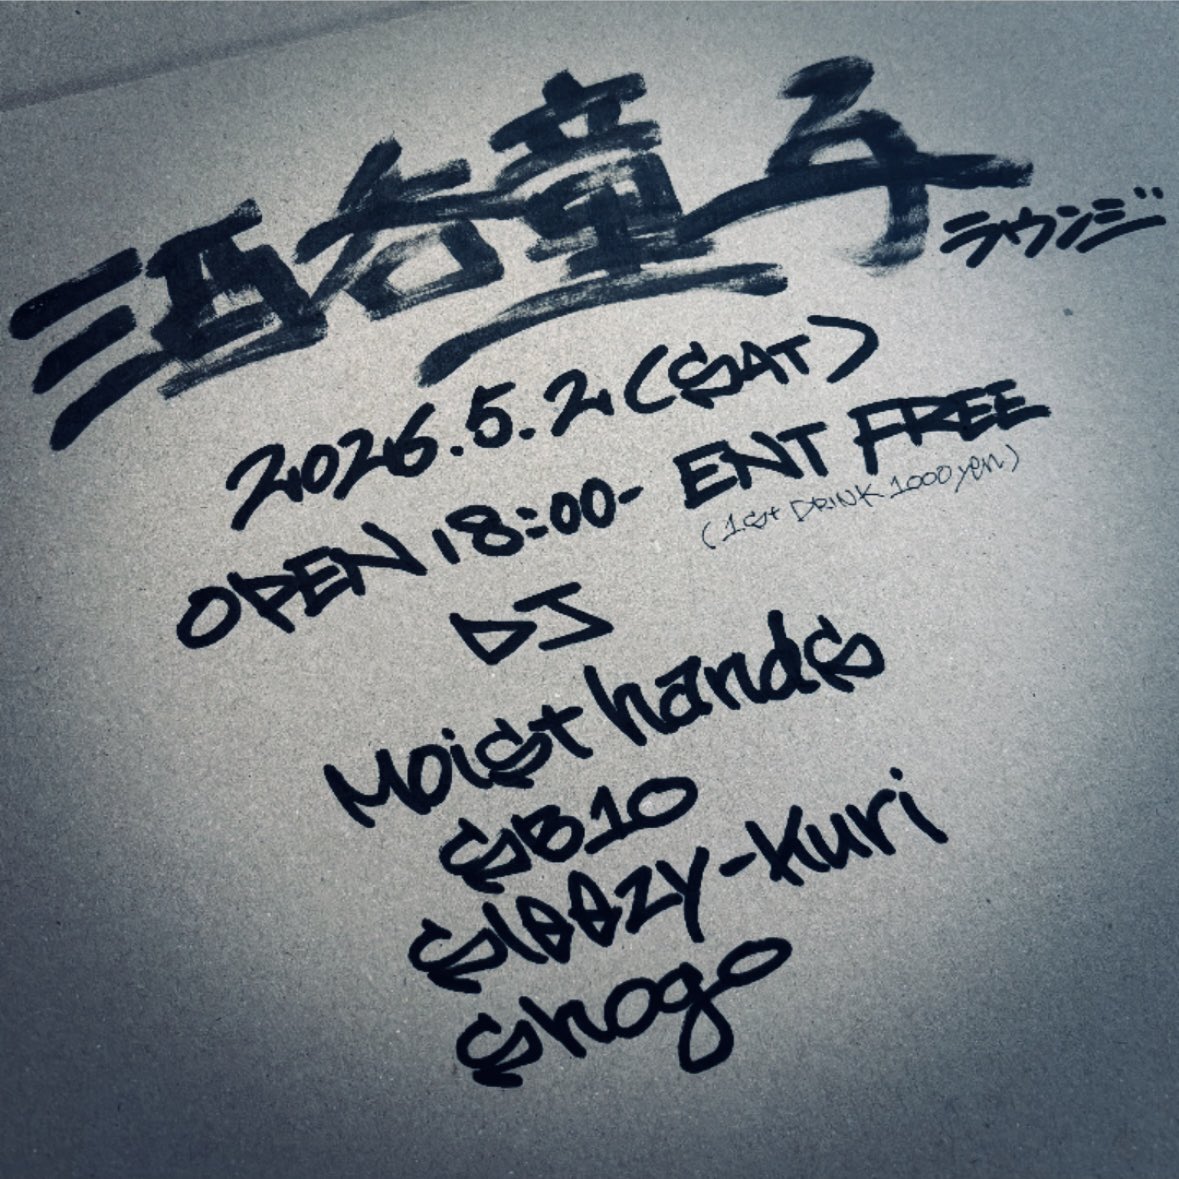 酒呑童子
ラウンジ
2026.5.2(SAT)
OPEN 18:00- ENT FREE
(1st DRINK 1000yen)
DJ
Moist hands
SB10
Sleezy-Kuri
Shogo